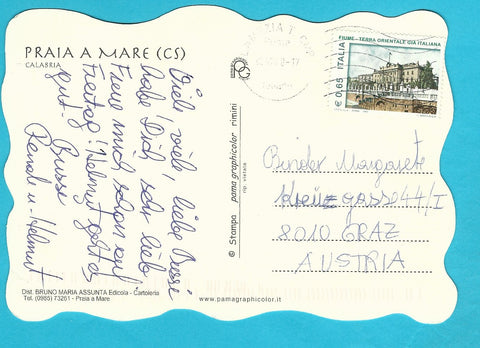 PRAIA A MARE (CS)
CALABRIA
Viele, viele, liebe Bussi
habe Dich sehr lieb
Freue mich schon auf
Freitag! Helmut geht es
gut. Bussi
Renate u. Helmut
Dist. BRUNO MARIA ASSUNTA Edicola - Cartoleria
Tel. (0985) 73261 - Praia a Mare
© Stampa pama graphicolor rimini
rip. vietata
www.pamagraphicolor.it
FIUME - TERRA ORIENTALE GIÀ ITALIANA
ITALIA
€ 0,65
Binder Margarete
gasse 44/I
8010 GRAZ
AUSTRIA